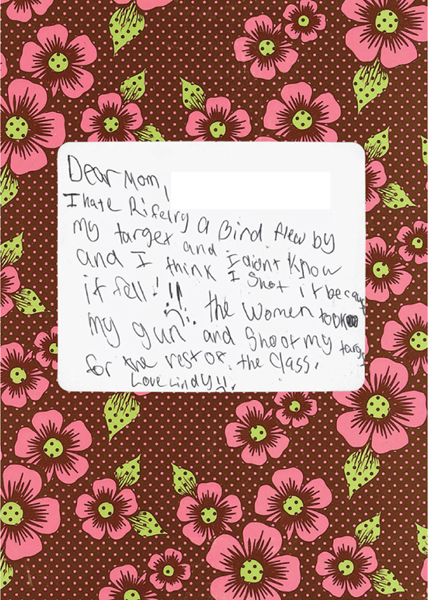 Dear Mom,
I hate Rifelry A Bird flew by
my target and I didnt know
and I think I shot it because
it fell!
the women took
my gun and shoot my targ
for the rest of the class.
Love Lindy!!